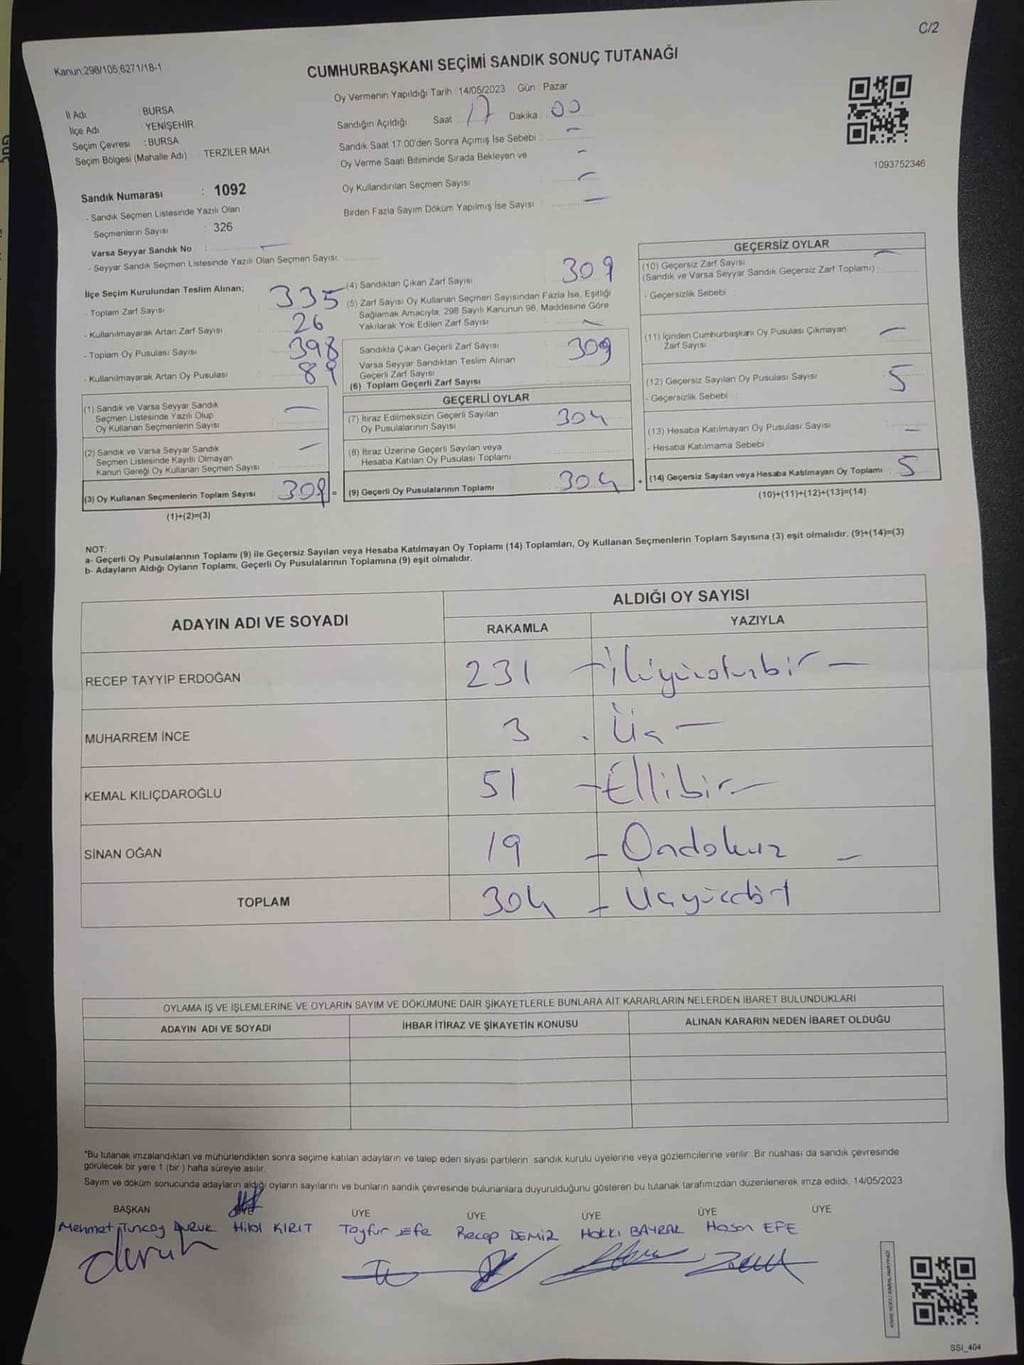 C/2
Kanun:298/105;6271/18-1
CUMHURBAŞKANI SEÇİMİ SANDIK SONUÇ TUTANAĞI
Oy Vermenin Yapıldığı Tarih :14/05/2023 Gün Pazar
İl Adı : BURSA
İlçe Adı : YENİŞEHİR
Seçim Çevresi : BURSA
Seçim Bölgesi (Mahalle Adı) TERZİLER MAH.
Sandığın Açıldığı Saat 17 Dakika 00
Sandık Saat 17 00'den Sonra Açımış İse Sebebi : –
Oy Verme Saati Bitiminde Sırada Bekleyen ve –
Oy Kullandırılan Seçmen Sayısı –
Birden Fazla Sayım Döküm Yapılmış İse Sayısı –
1093752346
Sandık Numarası : 1092
- Sandık Seçmen Listesinde Yazılı Olan
Seçmenlerin Sayısı : 326
Varsa Seyyar Sandık No : –
- Seyyar Sandık Seçmen Listesinde Yazılı Olan Seçmen Sayısı
İlçe Seçim Kurulundan Teslim Alınan;
- Toplam Zarf Sayısı 335
- Kullanılmayarak Artan Zarf Sayısı 26
- Toplam Oy Pusulası Sayısı 398
- Kullanılmayarak Artan Oy Pusulası 89
(1) Sandık ve Varsa Seyyar Sandık
Seçmen Listesinde Yazılı Olup
Oy Kullanan Seçmenlerin Sayısı –
(2) Sandık ve Varsa Seyyar Sandık
Seçmen Listesinde Kayıtlı Olmayan
Kanun Gereği Oy Kullanan Seçmen Sayısı –
(3) Oy Kullanan Seçmenlerin Toplam Sayısı 309 =
(1)+(2)=(3)
(4) Sandıktan Çıkan Zarf Sayısı 309
(5) Zarf Sayısı Oy Kullanan Seçmen Sayısından Fazla İse, Eşitliği
Sağlamak Amacıyla, 298 Sayılı Kanunun 98. Maddesine Göre
Yakılarak Yok Edilen Zarf Sayısı –
Sandıkta Çıkan Geçerli Zarf Sayısı 309
Varsa Seyyar Sandıktan Teslim Alınan
Geçerli Zarf Sayısı
(6) Toplam Geçerli Zarf Sayısı
GEÇERLİ OYLAR
(7) İtiraz Edilmeksizin Geçerli Sayılan
Oy Pusulalarının Sayısı 304
(8) İtiraz Üzerine Geçerli Sayılan veya
Hesaba Katılan Oy Pusulası Toplamı
(9) Geçerli Oy Pusulalarının Toplamı 304 +
GEÇERSİZ OYLAR
(10) Geçersiz Zarf Sayısı –
(Sandık ve Varsa Seyyar Sandık Geçersiz Zarf Toplamı)
- Geçersizlik Sebebi :
(11) İçinden Cumhurbaşkanı Oy Pusulası Çıkmayan
Zarf Sayısı –
(12) Geçersiz Sayılan Oy Pusulası Sayısı 5
- Geçersizlik Sebebi :
(13) Hesaba Katılmayan Oy Pusulası Sayısı –
- Hesaba Katılmama Sebebi :
(14) Geçersiz Sayılan veya Hesaba Katılmayan Oy Toplamı 5
(10)+(11)+(12)+(13)=(14)
NOT:
a- Geçerli Oy Pusulalarının Toplamı (9) ile Geçersiz Sayılan veya Hesaba Katılmayan Oy Toplamı (14) Toplamları, Oy Kullanan Seçmenlerin Toplam Sayısına (3) eşit olmalıdır. (9)+(14)=(3)
b- Adayların Aldığı Oyların Toplamı, Geçerli Oy Pusulalarının Toplamına (9) eşit olmalıdır.
ADAYIN ADI VE SOYADI ALDIĞI OY SAYISI
RAKAMLA YAZIYLA
RECEP TAYYİP ERDOĞAN 231 – İkiyüzotuzbir –
MUHARREM İNCE 3 – Üç –
KEMAL KILIÇDAROĞLU 51 – Ellibir –
SİNAN OĞAN 19 – Ondokuz –
TOPLAM 304 – Üçyüzdört
OYLAMA İŞ VE İŞLEMLERİNE VE OYLARIN SAYIM VE DÖKÜMÜNE DAİR ŞİKAYETLERLE BUNLARA AİT KARARLARIN NELERDEN İBARET BULUNDUKLARI
ADAYIN ADI VE SOYADI İHBAR İTİRAZ VE ŞİKAYETİN KONUSU ALINAN KARARIN NEDEN İBARET OLDUĞU
*Bu tutanak imzalandıktan ve mühürlendikten sonra seçime katılan adayların ve talep eden siyasi partilerin sandık kurulu üyelerine veya gözlemcilerine verilir. Bir nüshası da sandık çevresinde
görülecek bir yere 1 (bir ) hafta süreyle asılır.
Sayım ve döküm sonucunda adayların aldığı oyların sayılarını ve bunların sandık çevresinde bulunanlara duyurulduğunu gösteren bu tutanak tarafımızdan düzenlenerek imza edildi. 14/05/2023
BAŞKAN ÜYE ÜYE ÜYE ÜYE ÜYE
Mehmet Tuncay DURUK KIRIT Tayfur Efe Recep DEMİZ Hakkı BAYRAK Hasan EFE
SSI_404